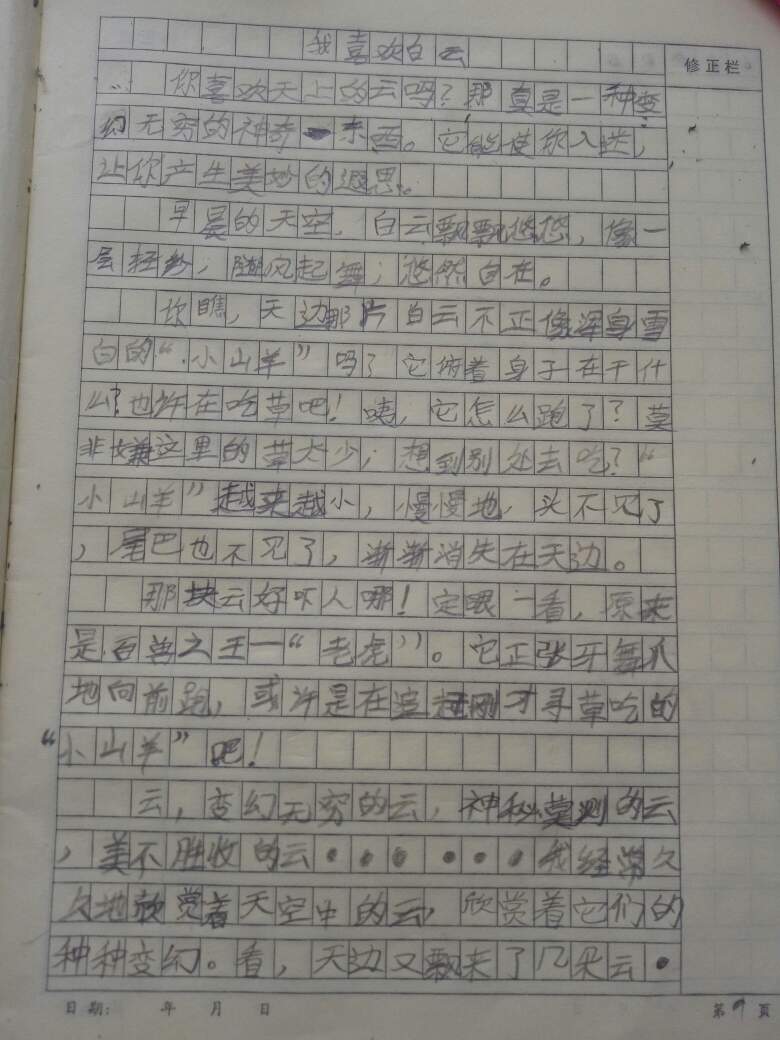 我喜欢白云
修正栏
你喜欢天上的云吗？那真是一种变
幻无穷的神奇东西。它能使你入迷，
让你产生美妙的遐思。
早晨的天空，白云飘飘悠悠，像一
层轻纱，随风起舞，悠然自在。
你瞧，天边那片白云不正像浑身雪
白的“小山羊”吗？它俯着身子在干什
么？也许在吃草吧！咦，它怎么跑了？莫
非嫌这里的草太少，想到别处去吃？“
小山羊”越来越小，慢慢地，头不见了
，尾巴也不见了，渐渐消失在天边。
那块云好吓人哪！定眼一看，原来
是百兽之王一“老虎”。它正张牙舞爪
地向前跑，或许是在追赶刚才寻草吃的
“小山羊”吧！
云，变幻无穷的云，神秘莫测的云
，美不胜收的云······我经常久
久地欣赏着天空中的云，欣赏着它们的
种种变幻。看，天边又飘来了几朵云·
日期： 年 月 日 第 9 页